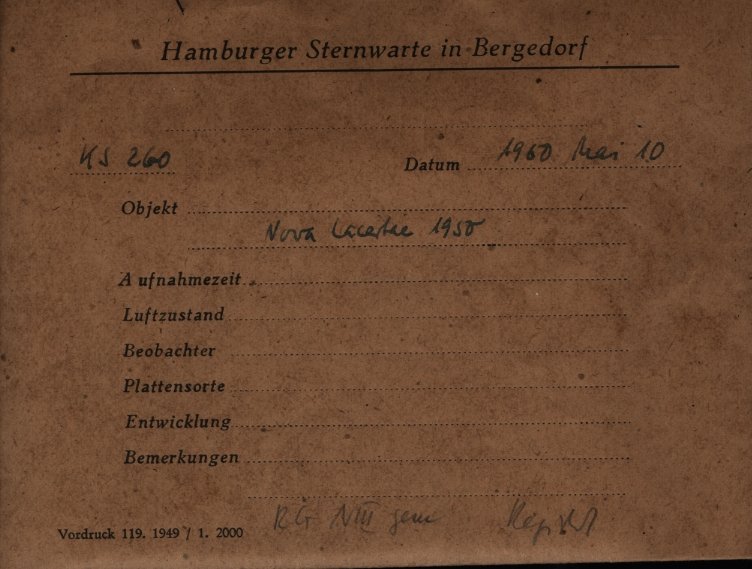 Hamburger Sternwarte in Bergedorf
KS 260
Datum 1950 Mai 10
Objekt
Nova Lacertae 1950
Aufnahmezeit
Luftzustand
Beobachter
Plattensorte
Entwicklung
Bemerkungen
Vordruck 119. 1949 / 1. 2000